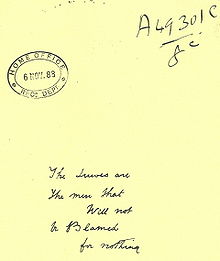 A49301C
8c
HOME OFFICE
6 NOV. 88
RECD. DEPT
The Juwes are
The men that
Will not
be Blamed
for nothing